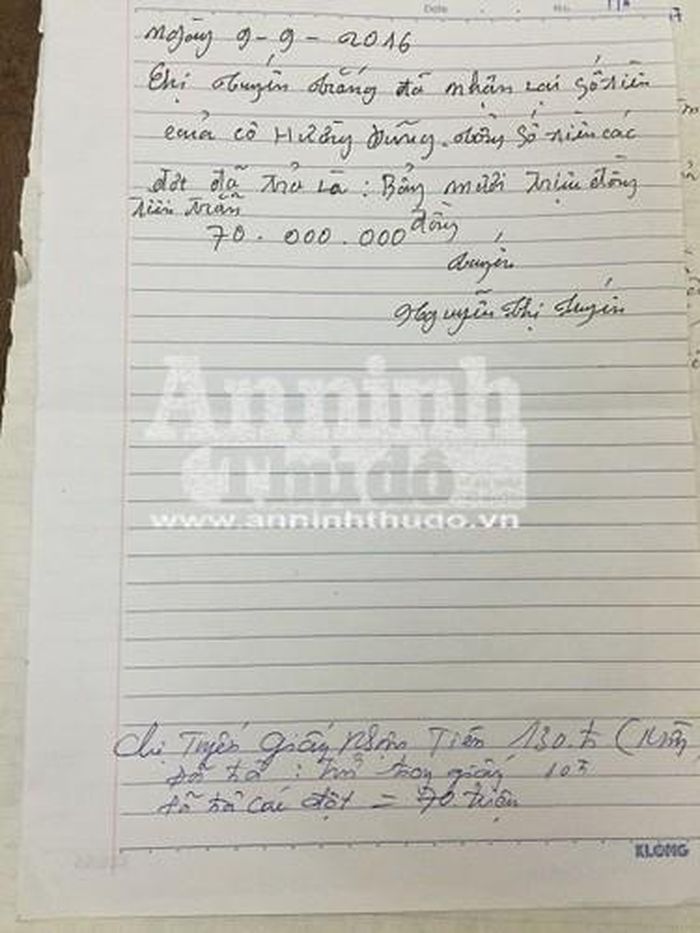 Date No
Ngày 9-9-2016
Chị Tuyến Trắng đã nhận lại số tiền
của cô Hương Dũng. Tổng số tiền các
đợt đã trả là: Bảy mươi triệu đồng
tiền trẵn
70.000.000 đồng
Tuyến
Nguyễn Thị Tuyến
An ninh
Thủ đô
www.anninhthudo.vn
Chị Tuyến giấy nhận Tiền 130.tr
Đã trả: trong giấy 10
đã trả các đợt = 70 triệu
KLONG